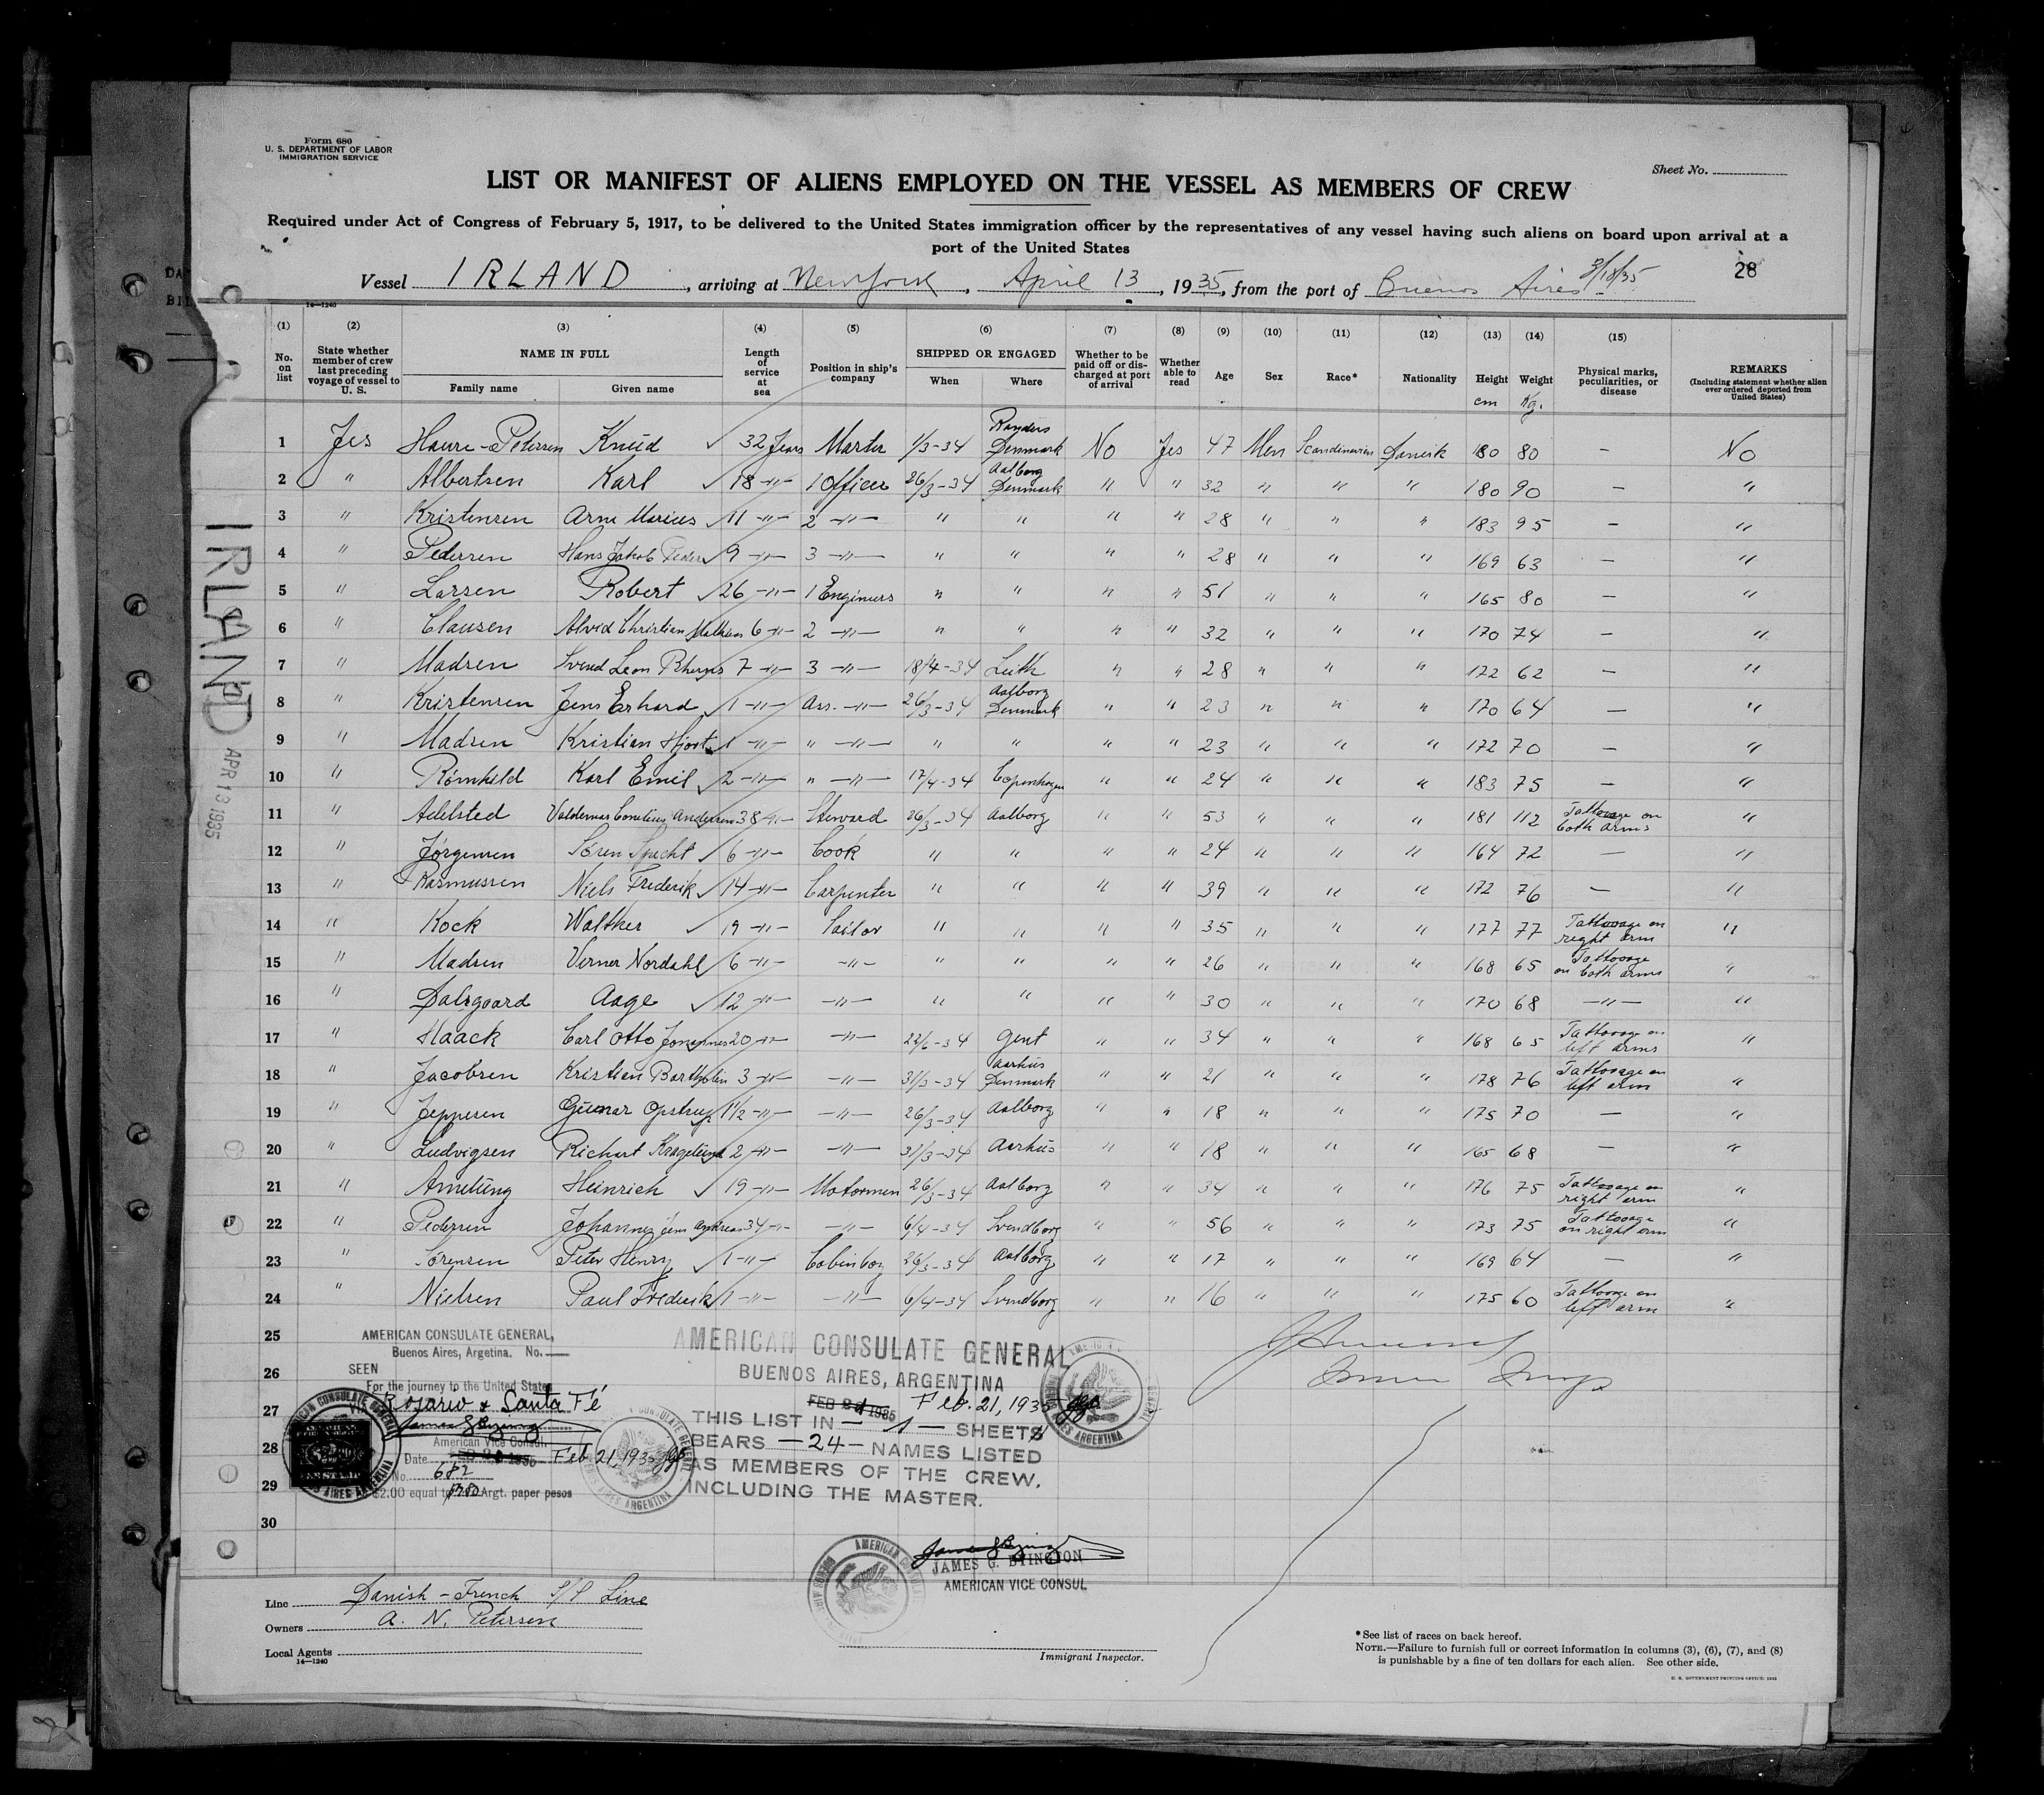 Form 680
U. S. DEPARTMENT OF LABOR
IMMIGRATION SERVICE
Sheet No.
LIST OR MANIFEST OF ALIENS EMPLOYED ON THE VESSEL AS MEMBERS OF CREW
Required under Act of Congress of February 5, 1917, to be delivered to the United States immigration officer by the representatives of any vessel having such aliens on board upon arrival at a
port of the United States
Vessel IRLAND, arriving at New York, April 13, 1935, from the port of Buenos Aires 3/18/35 28
14—1240
(1) (2) (3) (4) (5) (6) (7) (8) (9) (10) (11) (12) (13) (14) (15)
No. on list State whether member of crew last preceding voyage of vessel to U. S. NAME IN FULL Family name Given name Length of service at sea Position in ship's company SHIPPED OR ENGAGED When Where Whether to be paid off or discharged at port of arrival Whether able to read Age Sex Race* Nationality Height cm Weight Kg. Physical marks, peculiarities, or disease REMARKS (Including statement whether alien ever ordered deported from United States)
1 Jes Haure-Petersen Knud 32 Jears Master 1/3-34 Randers Denmark No Jes 47 Men Scandinavien Danish 180 80 — No
2 " Albertsen Karl 18 -"- 1 Officer 26/3-34 Aalborg Denmark " " 32 " " " 180 90 — "
3 " Kristensen Arne Marius 11 -"- 2 -"- " " " " 28 " " " 183 95 — "
4 " Pedersen Hans Jakob Peder 9 -"- 3 -"- " " " " 28 " " " 169 63 — "
5 " Larsen Robert 26 -"- 1 Engineers " " " " 51 " " " 165 80 — "
6 " Clausen Alvid Christian Mathias 6 -"- 2 -"- " " " " 32 " " " 170 74 — "
7 " Madsen Svend Leon 7 -"- 3 -"- 18/4-34 Leith " " 28 " " " 172 62 — "
8 " Kristensen Jens Erhard 1 -"- Ass. -"- 26/3-34 Aalborg Denmark " " 23 " " " 170 64 — "
9 " Madsen Kristian Hjort 1 -"- " -"- " " " " 23 " " " 172 70 — "
10 " Rømhild Karl Emil 2 -"- " -"- 17/4-34 Copenhagen " " 24 " " " 183 75 — "
11 " Adelsted Valdemar Cornelius Andersen 38 -"- Steward 26/3-34 Aalborg " " 53 " " " 181 112 Tattooage on both arms "
12 " Jørgensen Søren Specht 6 -"- Cook " " " " 24 " " " 164 72 — "
13 " Rasmussen Niels Frederik 14 -"- Carpenter " " " " 39 " " " 172 76 — "
14 " Kock Walther 19 -"- Sailor " " " " 35 " " " 177 77 Tattooage on right arm "
15 " Madsen Verner Nordahl 6 -"- -"- " " " " 26 " " " 168 65 Tattooage on both arms "
16 " Dalsgaard Aage 12 -"- -"- " " " " 30 " " " 170 68 -"- "
17 " Haack Carl Otto Johannes 20 -"- -"- 22/6-34 Gent " " 34 " " " 168 65 Tattooage on left arms "
18 " Jacobsen Kristian Bartholin 3 -"- -"- 31/3-34 Aarhus Denmark " " 21 " " " 178 76 Tattooage on left arm "
19 " Jeppesen Gunnar Opstrup 1 1/2 -"- -"- 26/3-34 Aalborg " " 18 " " " 175 70 — "
20 " Ludvigsen Richart Kragelund 2 -"- -"- 31/3-34 Aarhus " " 18 " " " 165 68 — "
21 " Amelung Heinrich 19 -"- Motormen 26/3-34 Aalborg " " 34 " " " 176 75 Tattooage on right arm "
22 " Pedersen Johannes Jens Andreas 34 -"- -"- 6/4-34 Svendborg " " 56 " " " 173 75 Tattooage on right arm "
23 " Sørensen Peter Henry 1 -"- Cabinboy 26/3-34 Aalborg " " 17 " " " 169 64 — "
24 " Nielsen Paul Frederik 1 -"- -"- 6/4-34 Svendborg " " 16 " " " 175 60 Tattooage on left arm "
25
26
27
28
29
30
IRLAND
APR 13 1935
AMERICAN CONSULATE GENERAL,
Buenos Aires, Argetina. No.
SEEN
For the journey to the United States
Via Rosario & Santa Fé
James G Byington
American Vice Consul
Date FEB 21 1935 Feb 21, 1935
No. 682
$2.00 equal to Argt. paper pesos
AMERICAN CONSULATE GENERAL
BUENOS AIRES, ARGENTINA
FEB 21 1935 Feb. 21, 1935
THIS LIST IN — 1 — SHEETS
BEARS — 24 — NAMES LISTED
AS MEMBERS OF THE CREW,
INCLUDING THE MASTER.
James G Byington
JAMES G. BYINGTON
AMERICAN VICE CONSUL
Line Danish-French S/S Line
Owners A. N. Petersen
Local Agents
14—1240
Immigrant Inspector.
*See list of races on back hereof.
NOTE.—Failure to furnish full or correct information in columns (3), (6), (7), and (8)
is punishable by a fine of ten dollars for each alien. See other side.
U. S. GOVERNMENT PRINTING OFFICE: 1932